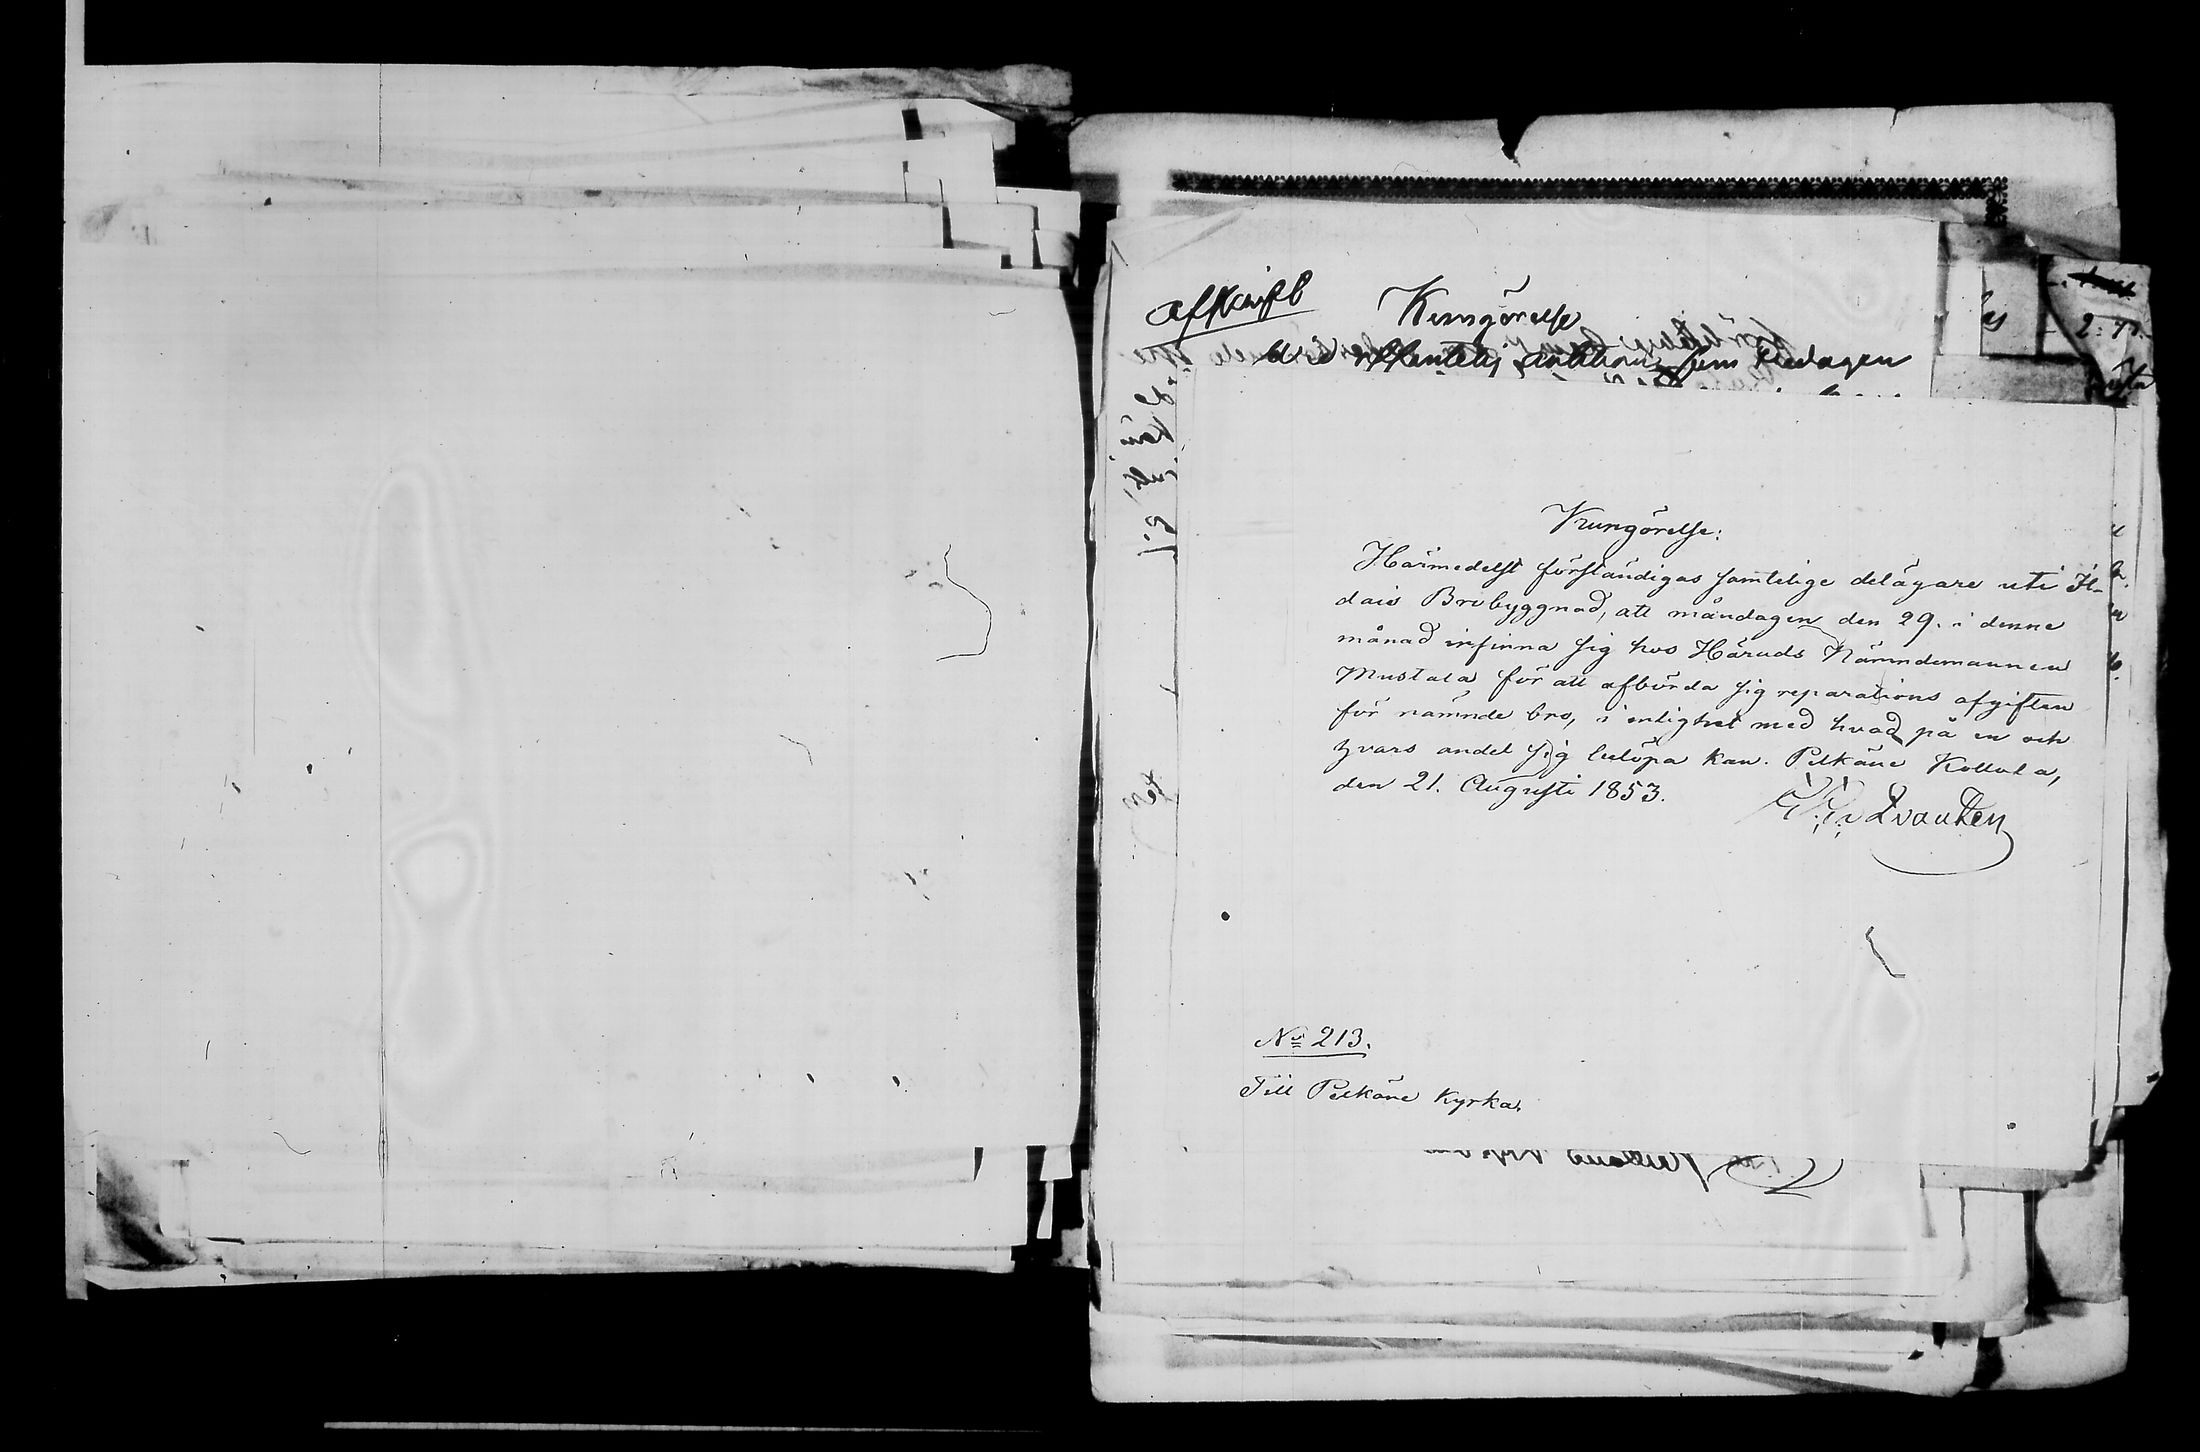 afskrift
Kungörelse
Vid offentelig auktion, som Tisdagen
Kungörelse:
Härmedelst förständigas samtelige delägare uti It-
dais Brobyggnad, att måndagen den 29. i denne
månad infinna sig hos Härads Nämndemannen
Mustala för att afbörda sig reparations afgiften
för nämnde bro, i enlighet med hvad på en och
hvars andel sig belöpa kan. Pelkäne Kollola,
den 21. Augusti 1853.
No 213.
Till Pelkäne Kyrka.